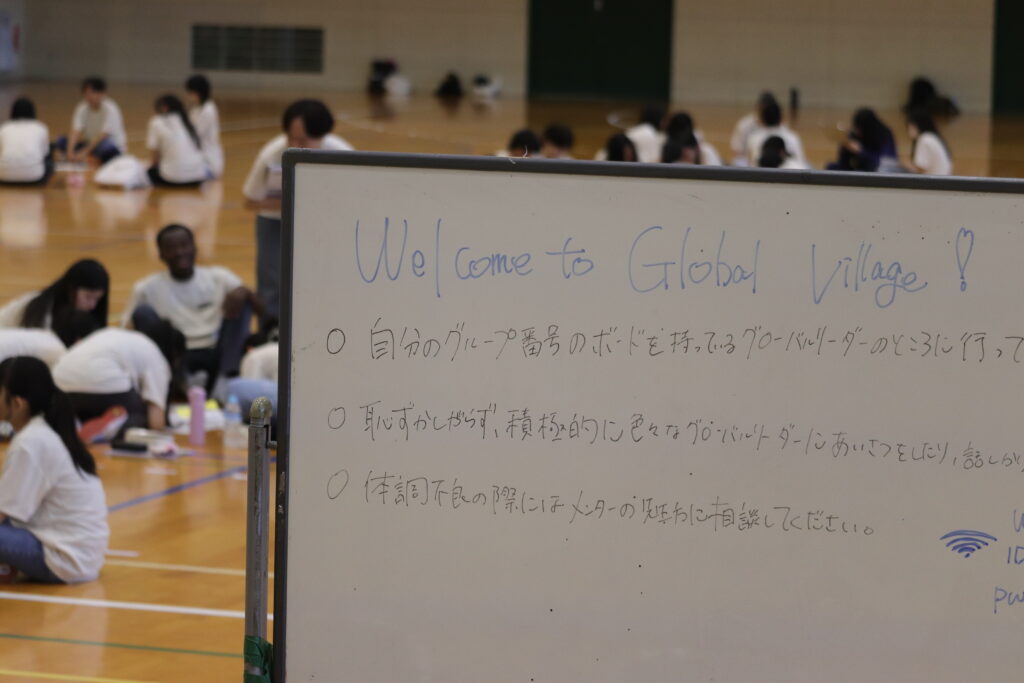 Welcome to Global Village!
○ 自分のグループ番号のボードを持っているグローバルリーダーのところに行って
○ 恥ずかしがらず、積極的に色々なグローバルリーダーにあいさつをしたり、話しかけ
○ 体調不良の際にはメンターの先生方に相談してください。
ID
PW